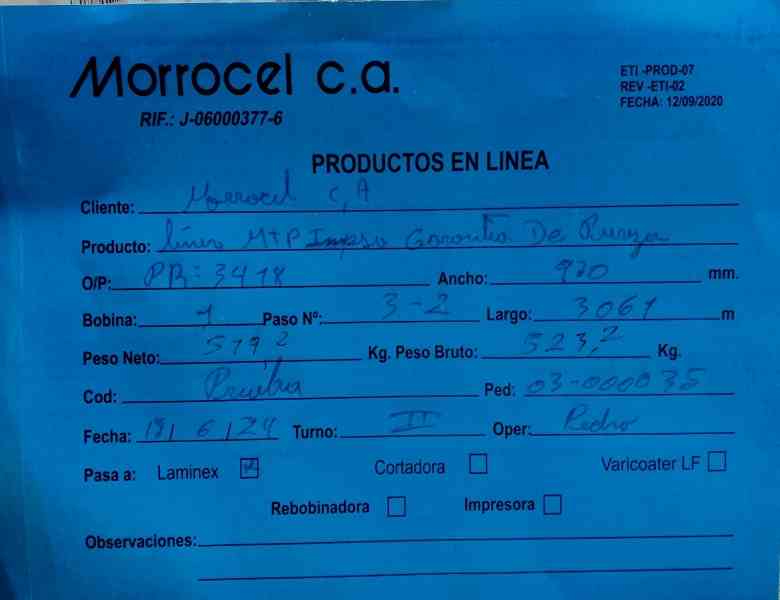 Morrocel c.a.
RIF.: J-06000377-6
ETI -PROD-07
REV -ETI-02
FECHA: 12/09/2020
PRODUCTOS EN LINEA
Cliente: Morrocel C,A
Producto: Linea MTP Impso Garantia De Pureza
O/P: PR-3418 Ancho: 920 mm.
Bobina: 1 Paso Nº: 3-2 Largo: 3061 m
Peso Neto: 519,2 Kg. Peso Bruto: 523,2 Kg.
Cod: Prueba Ped: 03-000035
Fecha: /6/24 Turno: II Oper: Pedro
Pasa a: Laminex Cortadora Varicoater LF
Rebobinadora Impresora
Observaciones: